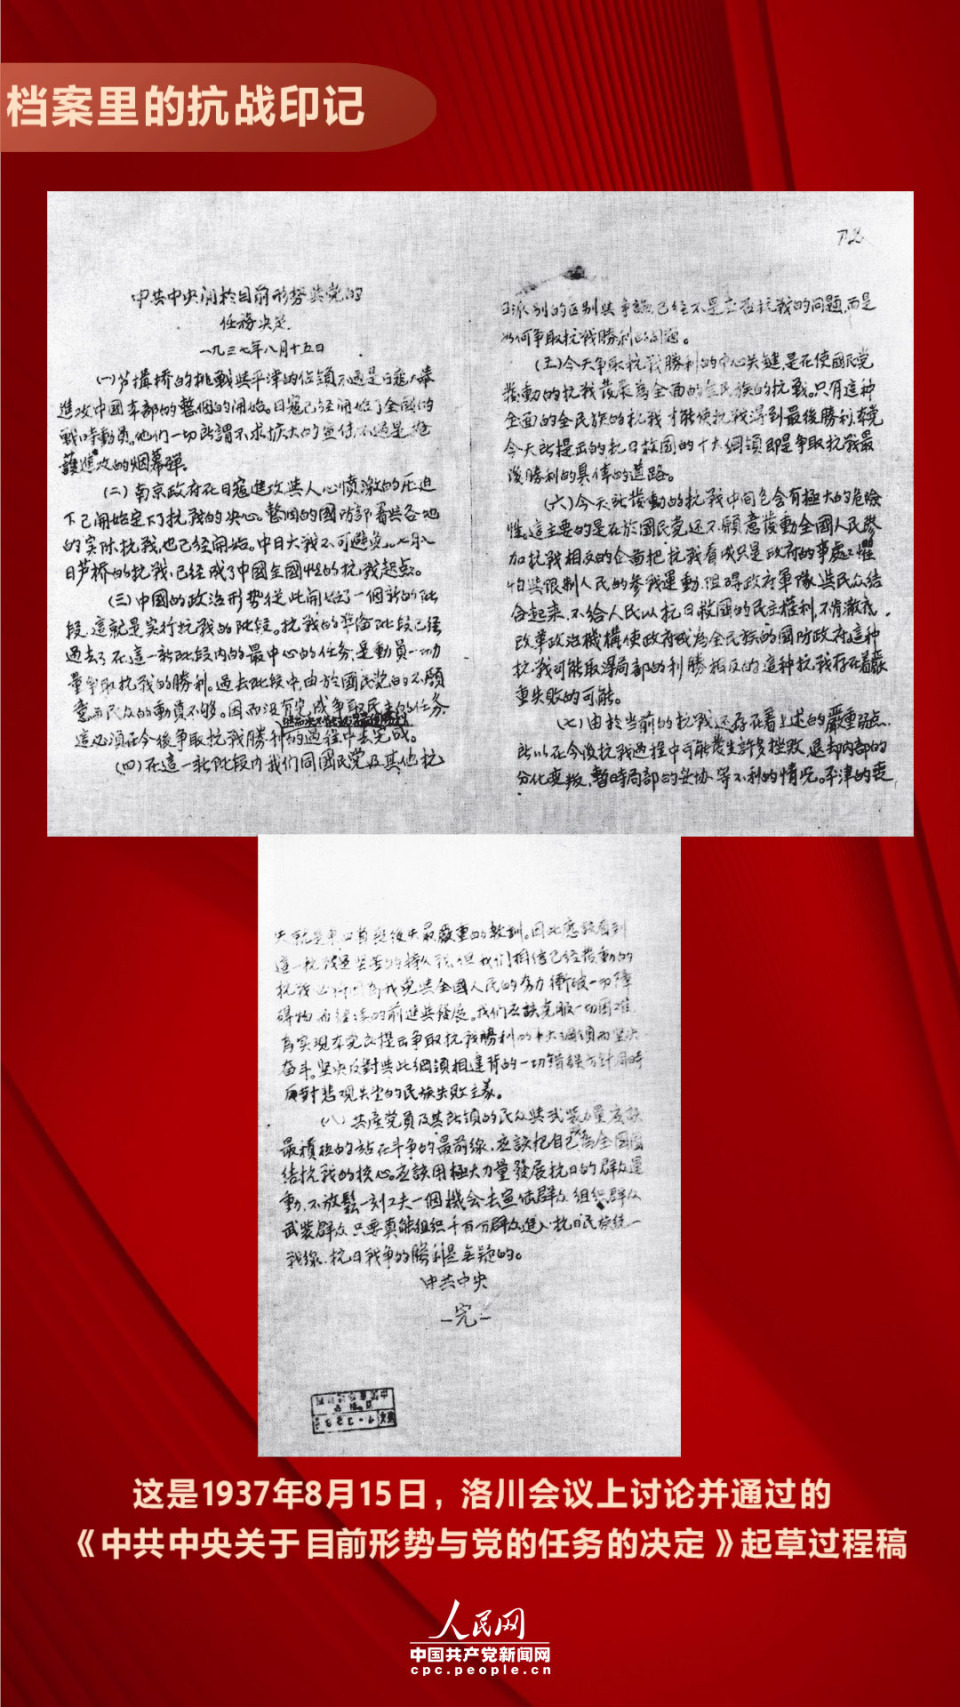 档案里的抗战印记
中共中央关於目前形势与党的
任务决定
一九三七年八月十五日
(一)芦沟桥的挑战与平津的佔领不过是日寇大举
進攻中國本部的整個的開始。日寇已经開始了全國的
戰時動員。他们一切所謂不求扩大的宣传不过是掩
護進攻的烟幕弹。
(二)南京政府在日寇進攻與人心愤激的压迫
下已開始定下了抗战的决心。整個的國防部署與各地
的实际抗战,也已經開始。中日大战不可避免。七月八
日芦桥的抗战,已经成了中國全國性的抗战起点。
(三)中國的政治形势從此開始了一個新的阶
段,這就是实行抗战的阶段。抗战的準备阶段已经
过去了。在這一新阶段内的最中心的任务,是動員一切力
量争取抗战的勝利。过去阶段中,由於國民党的不願
意與民众的動員不够。因而没有完成争取民主的任务,
這必須在今後争取抗战勝利的过程中去完成。
(四)在這一新阶段内,我们同國民党及其他抗
日派别的区别與争論,已经不是应否抗战的问题,而是
如何争取抗战勝利的问题。
(五)今天争取抗战勝利的中心关键,是在使國民党
發動的抗战發展为全面的全民族的抗战。只有這种
全面的全民族的抗战,才能使抗战得到最後勝利。本党
今天所提出的抗日救國的十大綱領,即是争取抗战最
後勝利的具体的道路。
(六)今天所發動的抗战中间包含有極大的危險
性。這主要的是在於國民党还不願意發動全國人民參
加抗战。相反的,企图把抗战看成只是政府的事處處懼
怕與限制人民的參战運動,阻碍政府軍隊與民众结
合起来,不给人民以抗日救國的民主權利,不肯澈底
改革政治機構,使政府成为全民族的國防政府。這种
抗战可能取得局部的利勝,相反的這种抗战存在着嚴
重失敗的可能。
(七)由於當前的抗战还存在着上述的嚴重弱点,
所以在今後抗战过程中,可能發生許多挫敗、退却,内部的
分化变叛,暫時局部的妥协,等不利的情况。平津的喪
失就是東四省喪後失最嚴重的教訓。因此應該看到
這一抗战是艰苦的持久战。但我们相信已经發動的
抗战,必将因为我党與全國人民的努力,衝破一切障
碍物而继续的前進與發展。我们应該克服一切困难,
为实现本党所提出争取抗战勝利的十大綱領而坚决
奋斗。坚决反對與此綱領相違背的一切错誤方針,同時
反對悲观失望的民族失败主義。
(八)共產党員及其所領的民众與武装力量,应該
最積極的站在斗争的最前線,应該把自己成为全國團
结抗战的核心。应該用極大力量發展抗日的群众運
動,不放鬆一刻工夫一個機会去宣传群众,组织群众
武装群众。只要真能组织千百万群众進入抗日民族统一
我線,抗日戰争的勝利是無疑的。
中共中央
—完—
这是1937年8月15日，洛川会议上讨论并通过的
《中共中央关于目前形势与党的任务的决定》起草过程稿
人民网
中国共产党新闻网
cpc.people.cn